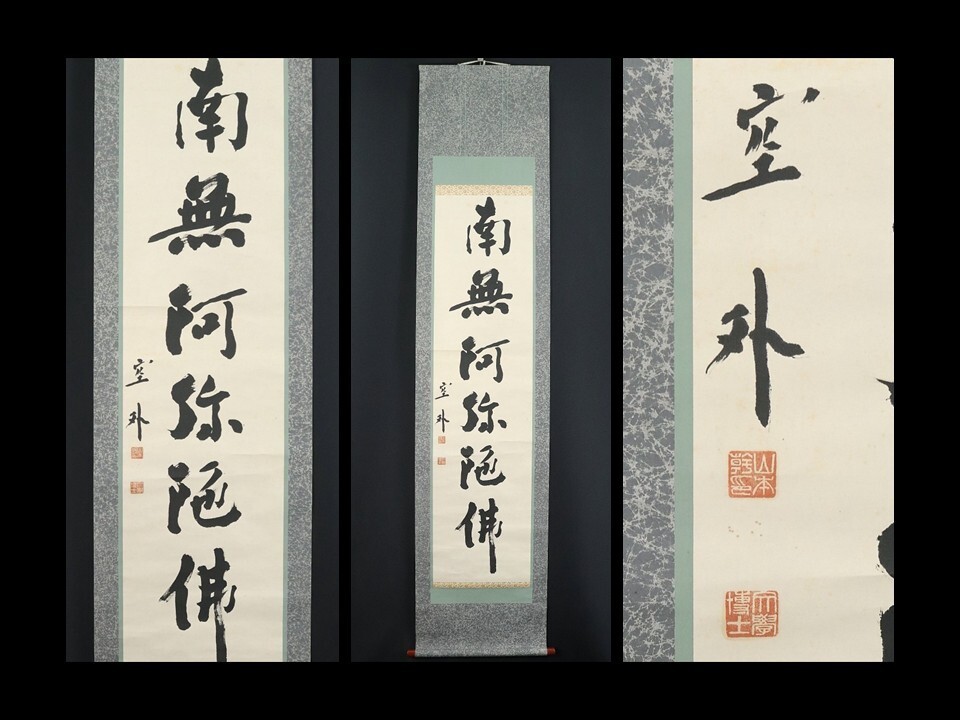 南無阿弥陀佛
空外
南無阿弥陀佛
空外
空外
山本
幹印
文學
博士